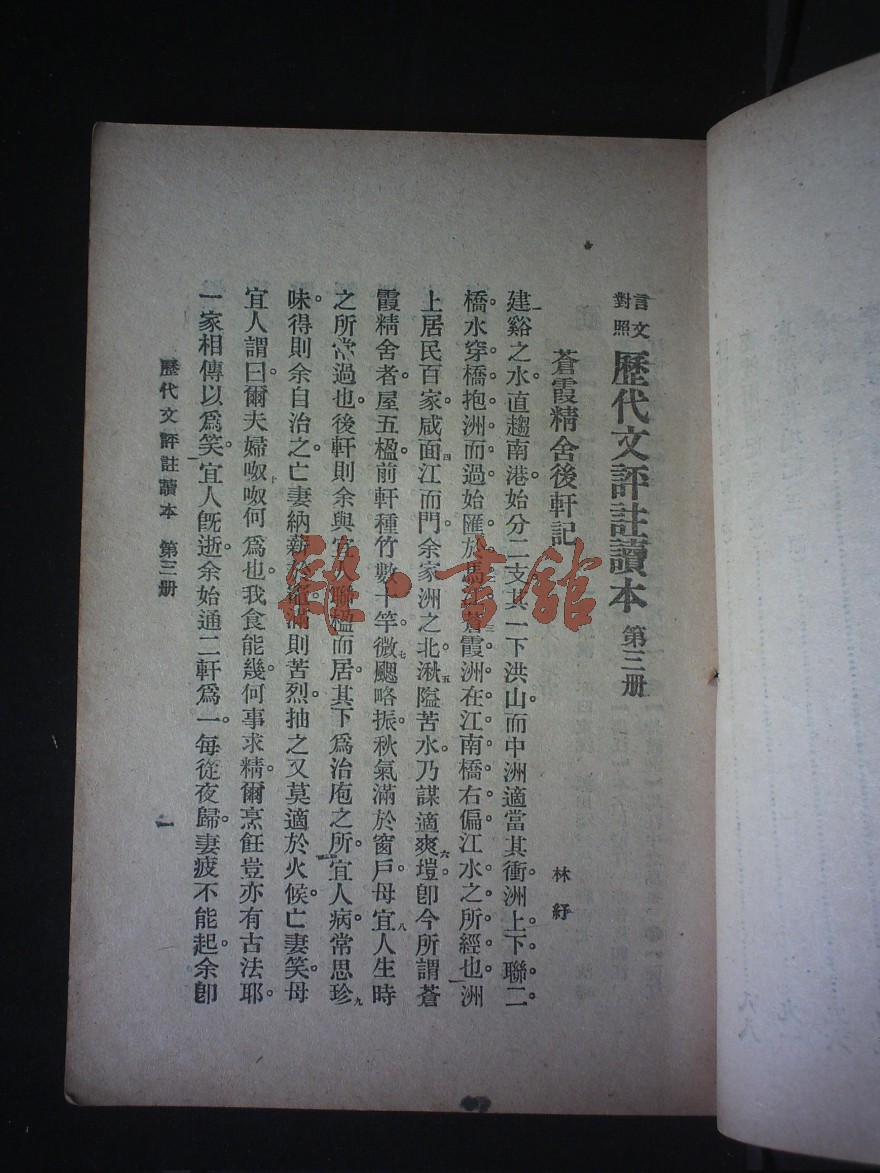 言文對照 歷代文評註讀本 第三册
蒼霞精舍後軒記
林紓
建谿之水。直趨南港。始分二支。其一下洪山。而中洲適當其衝。洲上下聯二
橋。水穿橋抱洲而過。始匯於馬江。蒼霞洲在江南橋右偏。江水之所經也。洲
上居民百家。咸面江而門。余家洲之北。湫隘苦水。乃謀適爽塏。卽今所謂蒼
霞精舍者。屋五楹。前軒種竹數十竿。微颸略振。秋氣滿於窗戶。母宜人生時
之所常過也。後軒則余與宜人聯楹而居。其下爲治庖之所。宜人病常思珍
味。得則余自治之。亡妻納薪於竈。滿則苦烈。抽之又莫適於火候。亡妻笑。母
宜人謂曰。爾夫婦呶呶何爲也。我食能幾。何事求精。爾烹飪豈亦有古法耶。
一家相傳以爲笑。宜人旣逝。余始通二軒爲一。每從夜歸。妻疲不能起。余卽
歷代文評註讀本 第三册
一
雜·書館